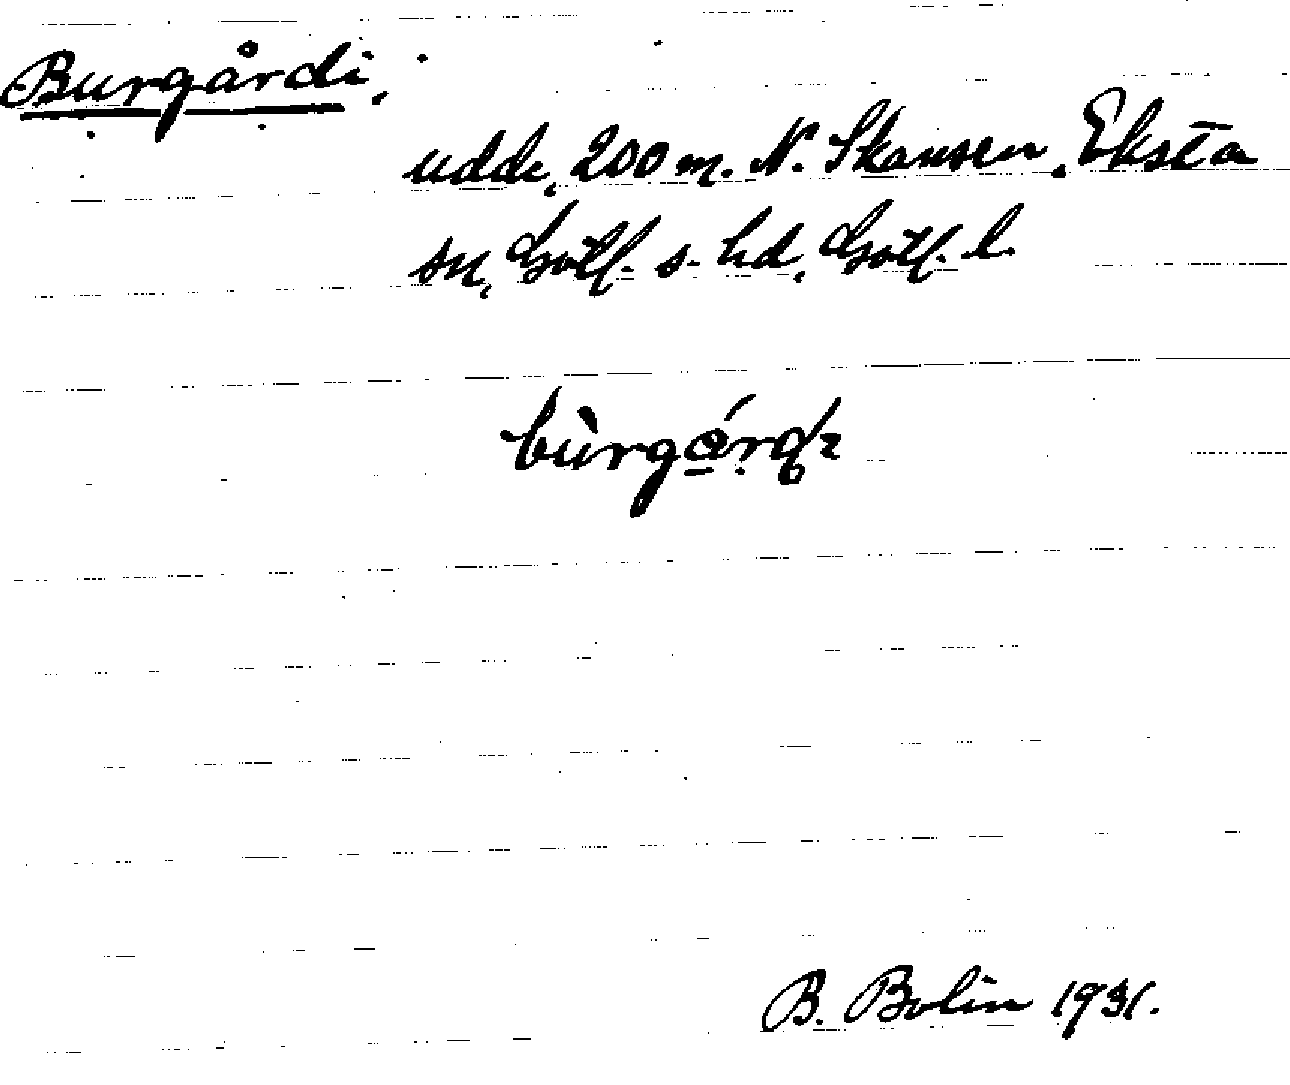 Burgårdi,
udde, 200 m. N. Skansen, Eksta
sn, Gotl. s. hd, Gotl. l.
B. Bolin 1931.